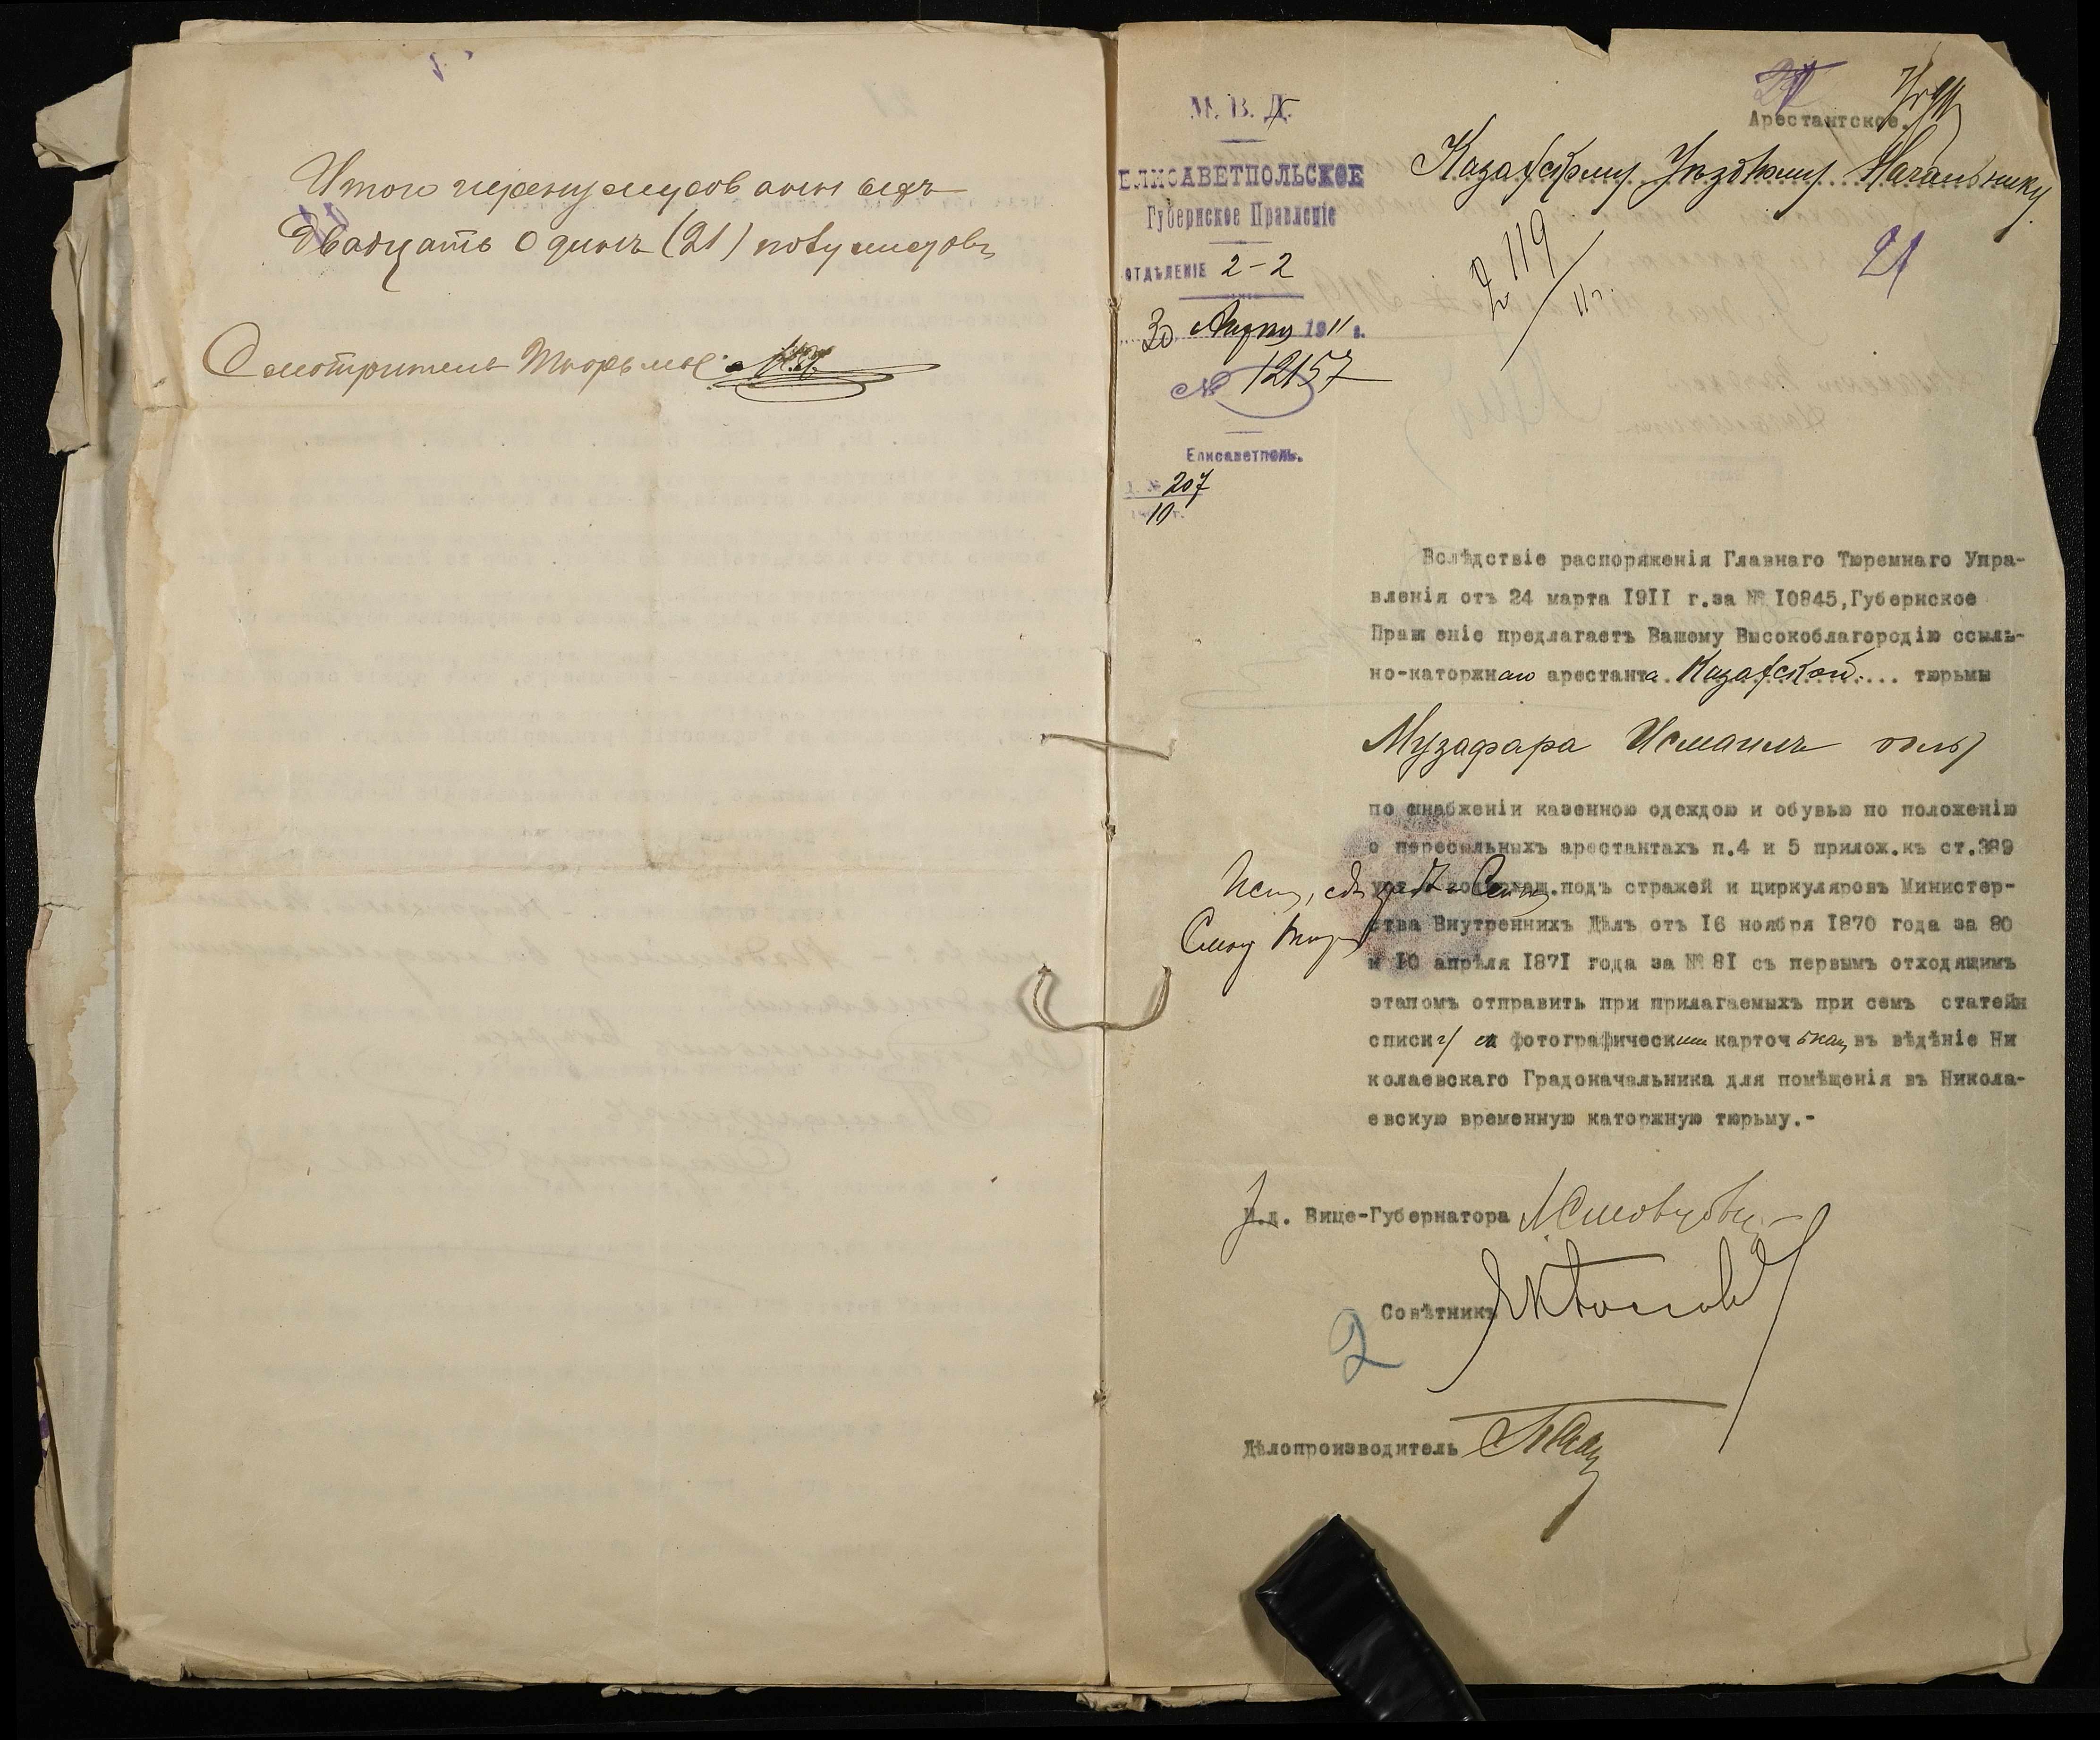 Итого перенумерованныхъ
Двадцать Одинъ (21) полулистовъ
Смотритель Тюрьмы
М. В. Д.
ЕЛИСАВЕТПОЛЬСКОЕ
Губернское Правленіе
ОТДѢЛЕНІЕ 2-2
30 1911 г.
№ 12157
Елисаветполь.
Д. № 207
10
Арестантское.
Казахскому Уѣздному Начальнику
119
11 г.
21
Вслѣдствіе распоряженія Главнаго Тюремнаго Упра-
вленія отъ 24 марта 1911 г.за № 10845,Губернское
Правленіе предлагаетъ Вашему Высокоблагородію ссыль-
но-каторжнаго арестанта Казахской тюрьмы
Музафара Исмаилъ оглы
по снабженіи казенною одеждою и обувью по положенію
о пересыльныхъ арестантахъ п.4 и 5 прилож.къ ст.389
уст. содержащ.подъ стражей и циркуляровъ Министер-
ства Внутреннихъ Дѣлъ отъ 16 ноября 1870 года за 80
и 10 апрѣля 1871 года за № 81 съ первымъ отходящимъ
этапомъ отправить при прилагаемыхъ при семъ статейн
списк фотографическими карточками въ вѣдѣніе Ни
колаевскаго Градоначальника для помѣщенія въ Никола-
евскую временную каторжную тюрьму.-
И.д. Вице-Губернатора
Совѣтникъ
2
Дѣлопроизводитель